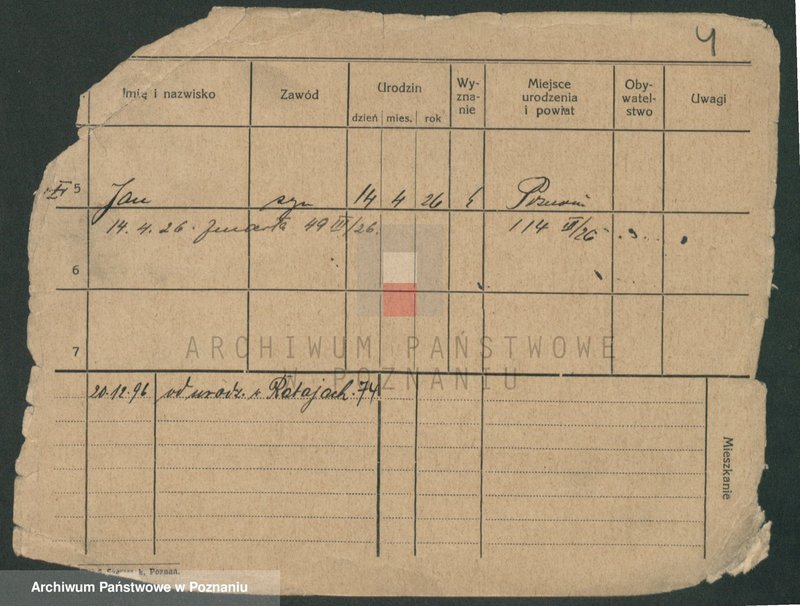 4
Imię i nazwisko Zawód Urodzin dzień mies. rok Wy-zna-nie Miejsce urodzenia i powiat Oby-watel-stwo Uwagi
5 Jan syn 14 4 26 Poznań
14. 4. 26. zmarła 49 III/26. 114 III/26
6
7
ARCHIWUM PAŃSTWOWE
W POZNANIU
20.12.96 od urodz. w Ratajach 74
Mieszkanie
k, Poznań.
Archiwum Państwowe w Poznaniu